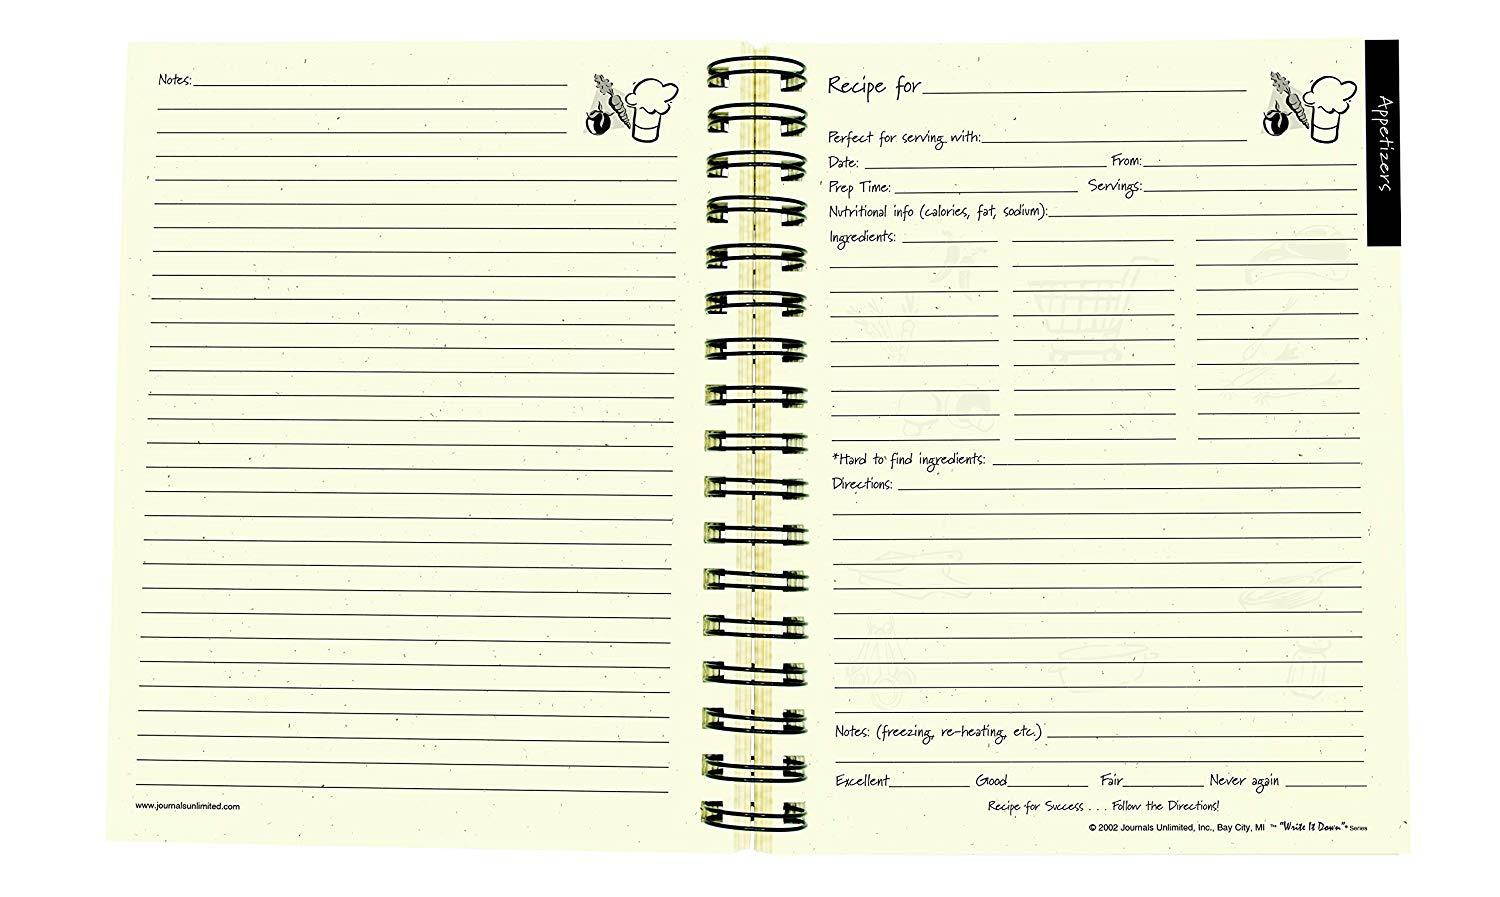 Notes:
www.journalsunlimited.com
Recipe for
Perfect for serving with:
Date: From:
Prep Time: Servings:
Nutritional info (calories, fat, sodium):
Ingredients:
*Hard to find ingredients:
Directions:
Notes: (freezing, re-heating, etc.)
Excellent Good Fair Never again
Recipe for Success . . . Follow the Directions!
© 2002 Journals Unlimited, Inc., Bay City, MI ™ "Write It Down"® Series
Appetizers